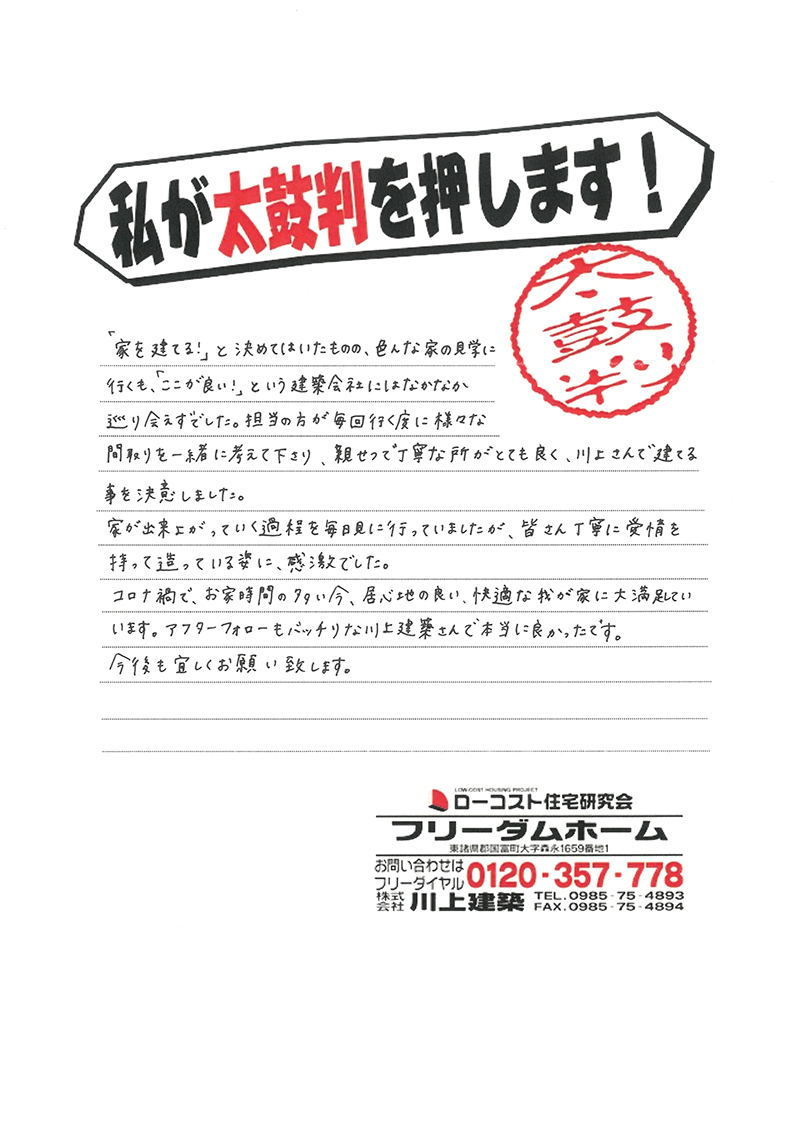 私が太鼓判を押します！
太鼓判
「家を建てる!」と決めてはいたものの、色んな家の見学に
行くも、「ここが良い!」という建築会社にはなかなか
巡り会えずでした。担当の方が毎回行く度に様々な
間取りを一緒に考えて下さり、親せつで丁寧な所がとても良く、川上さんで建てる
事を決意しました。
家が出来上がっていく過程を毎日見に行っていましたが、皆さん丁寧に愛情を
持って造っている姿に、感激でした。
コロナ禍で、お家時間の多い今、居心地の良い、快適な我が家に大満足してい
います。アフターフォローもバッチリな川上建築さんで本当に良かったです。
今後も宜しくお願い致します。
LOW-COST HOUSING PROJECT
ローコスト住宅研究会
フリーダムホーム
東諸県郡国富町大字森永1659番地1
お問い合わせは
フリーダイヤル 0120・357・778
株式会社 川上建築 TEL.0985-75-4893
FAX.0985-75-4894